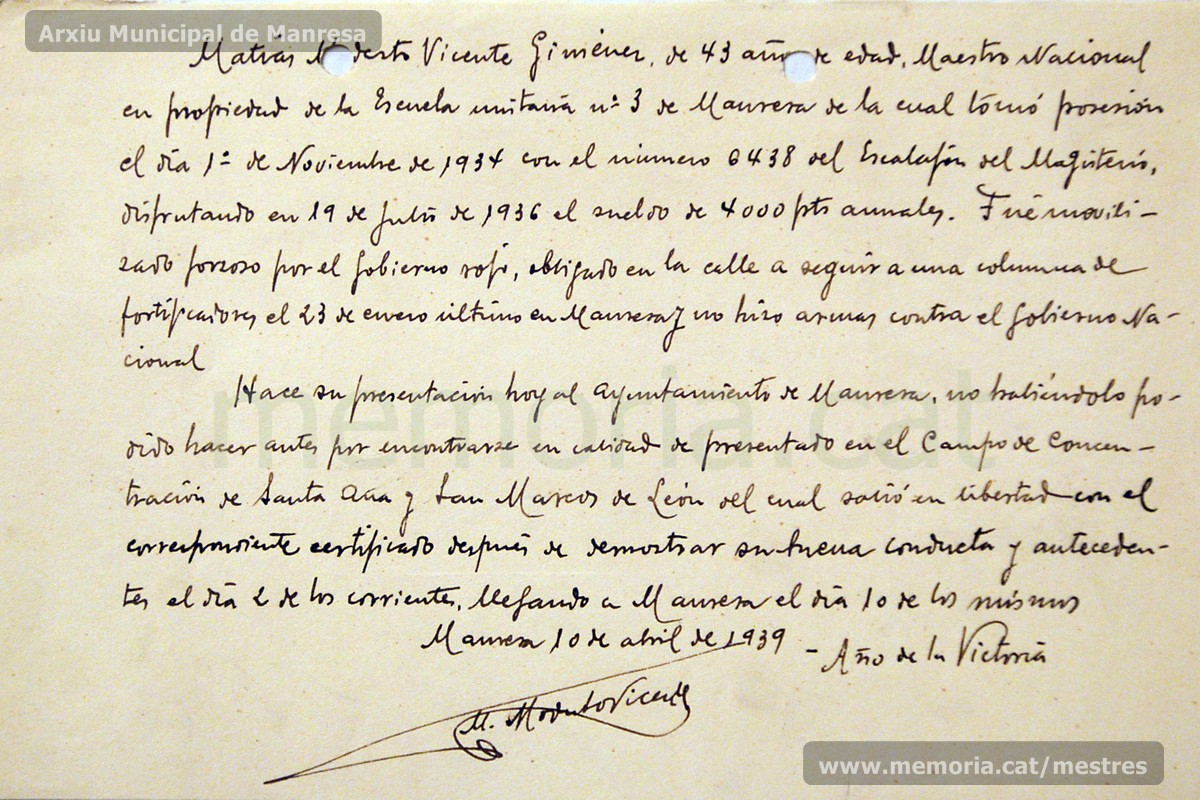 Arxiu Municipal de Manresa
Matías Modesto Vicente Giménez, de 43 años de edad, Maestro Nacional
en propiedad de la Escuela unitaria nº 3 de Manresa de la cual tomó posesión
el día 1º de Noviembre de 1934 con el número 6438 del Escalafón del Magisterio,
disfrutando en 19 de Julio de 1936 el sueldo de 4000 pts anuales. Fué movili-
zado forzoso por el Gobierno rojo, obligado en la calle a seguir a una columna de
fortificadores el 23 de enero último en Manresa y no hizo armas contra el Gobierno Na-
cional
Hace su presentación hoy al Ayuntamiento de Manresa, no habiéndolo po-
dido hacer antes por encontrarse en calidad de presentado en el Campo de Concen-
tración de Santa Ana y San Marcos de León del cual salió en libertad con el
correspondiente certificado después de demostrar su buena conducta y anteceden-
tes el día 2 de los corrientes, llegando a Manresa el día 10 de los mismos
Manresa 10 de abril de 1939 - Año de la Victoria
M. Modesto Vicente
memoria.cat
www.memoria.cat/mestres